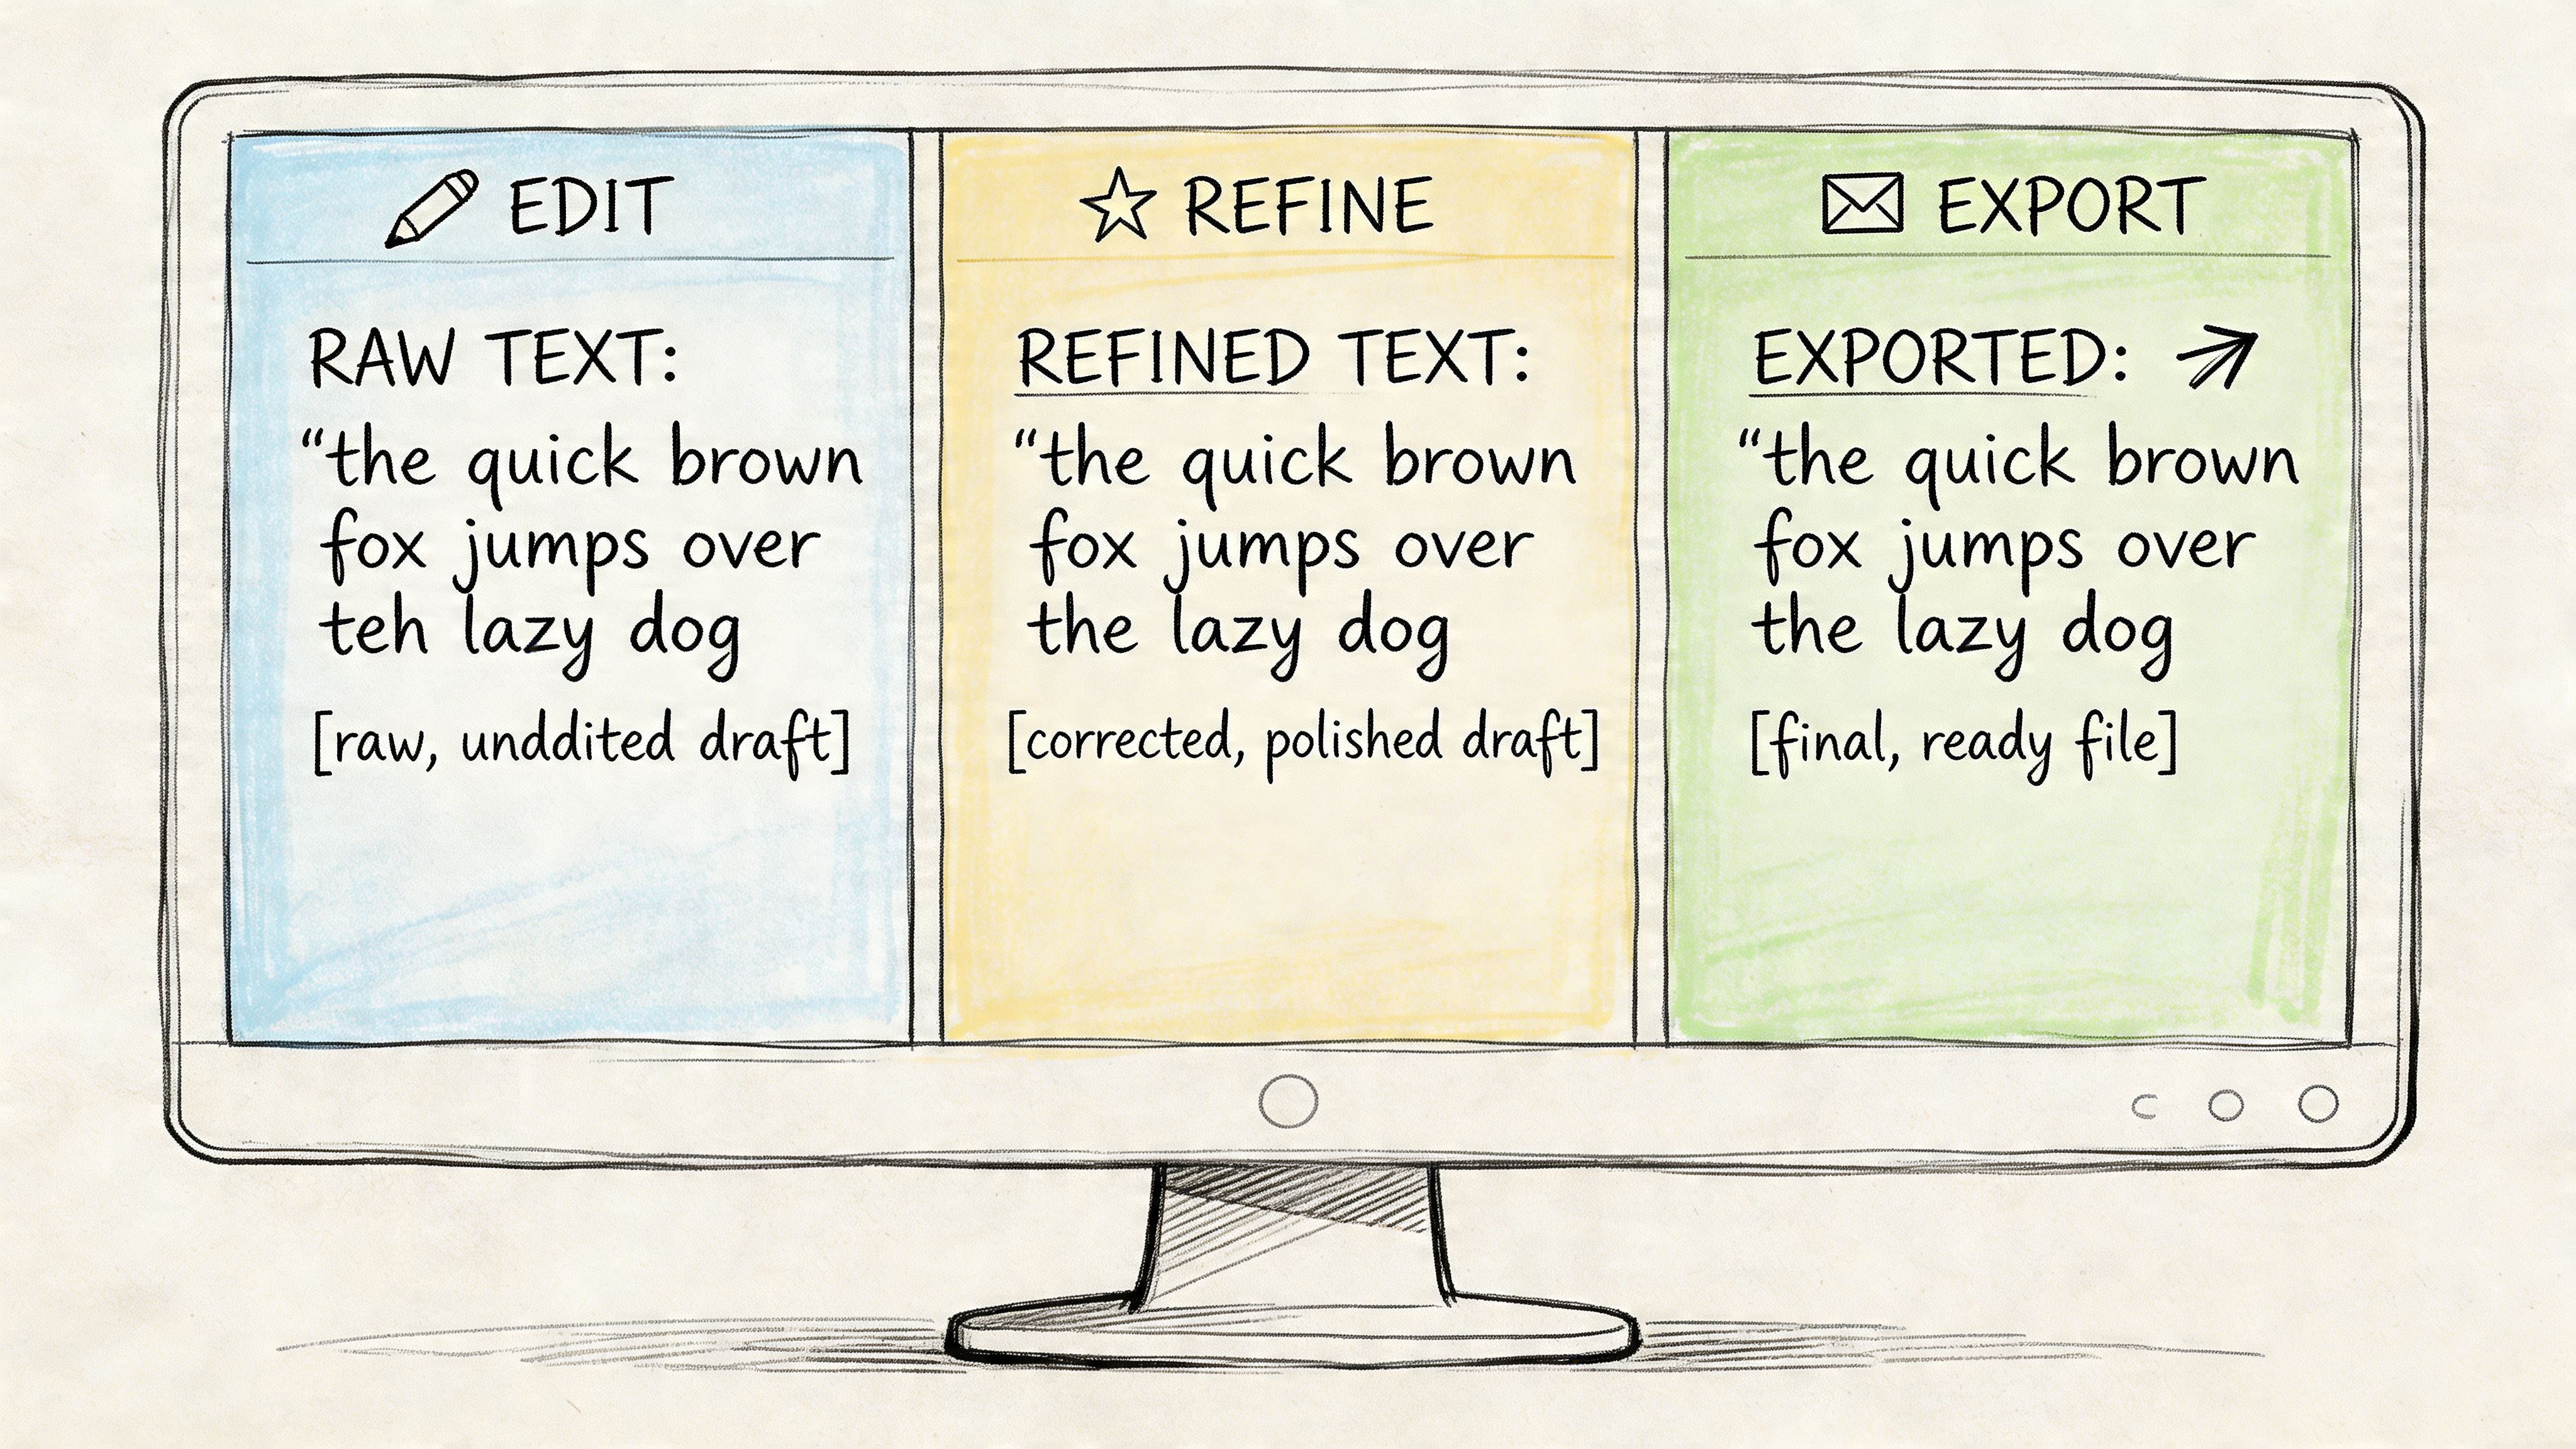 EDIT
RAW TEXT:
“the quick brown
fox jumps over
teh lazy dog
[raw, unddited draft]
REFINE
REFINED TEXT:
“the quick brown
fox jumps over
the lazy dog
[corrected, polished draft]
EXPORT
EXPORTED:
“the quick brown
fox jumps over
the lazy dog
[final, ready file]